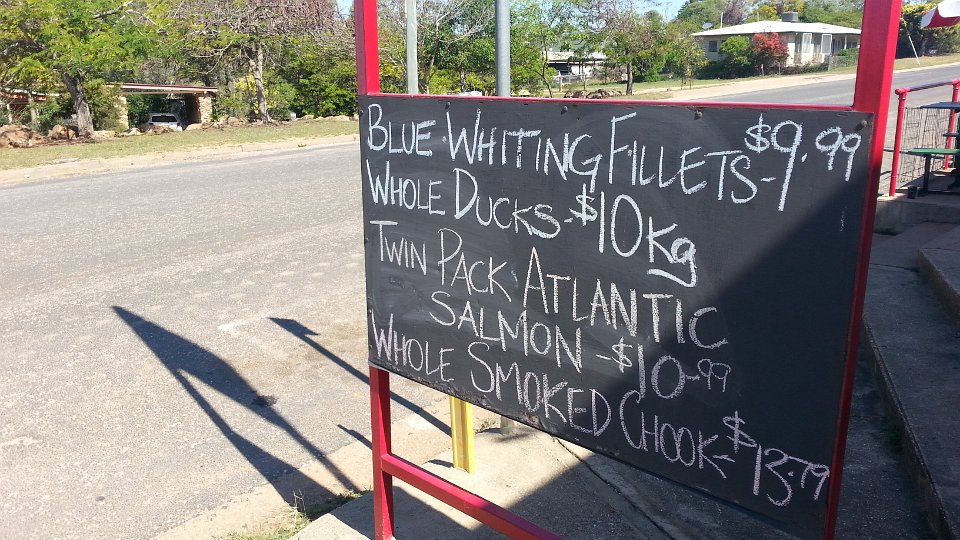 Blue Whiting Fillets - $9.99
Whole Ducks - $10kg
Twin Pack Atlantic
Salmon - $10.99
Whole Smoked Chook - $13.79